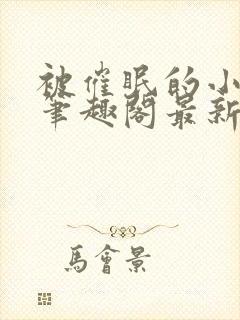 被催眠的小
笔趣阁最新
馬會景